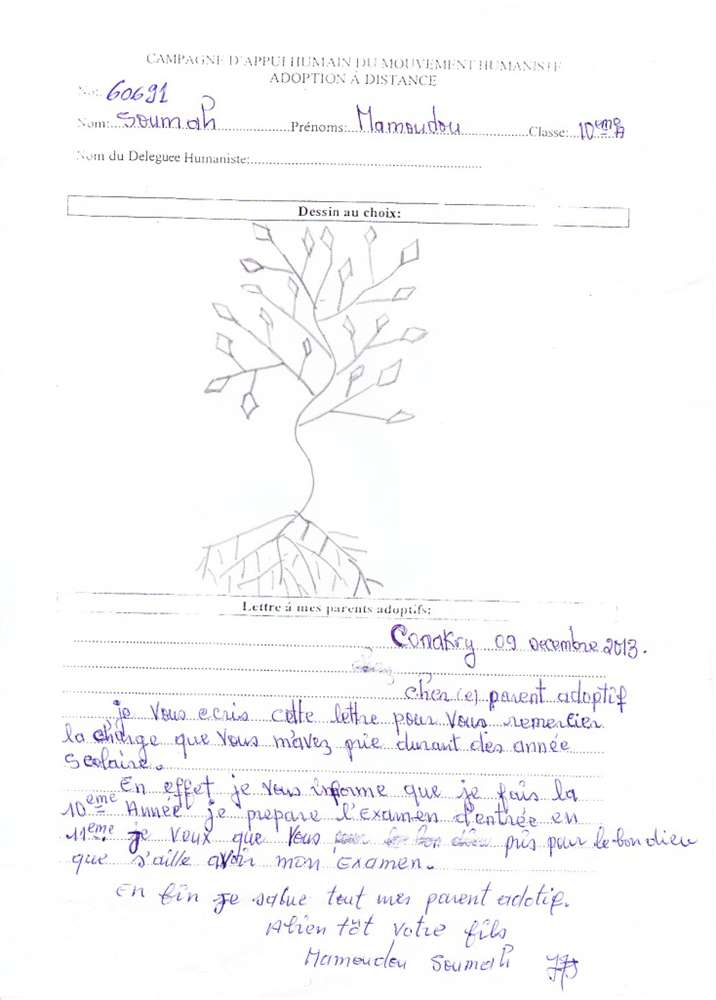 CAMPAGNE D'APPUI HUMAIN DU MOUVEMENT HUMANISTE
ADOPTION À DISTANCE
No: 60691
Nom: Soumah Prénoms: Mamoudou Classe: 10ème A
Nom du Deleguee Humaniste:
Dessin au choix:
Lettre á mes parents adoptifs:
Conakry 09 Decembre 2013.
cher(e) parent adoptif
je vous ecris cette lettre pour vous remercier
la charge que vous m'avez prie durant des année
Scolaire.
En effet je vous informe que je fais la
10ème Année je prepare l'Examen d'entrée en
11ème je veux que vous pris pour le bon dieu
que s'aille avoir mon Examen.
En fin je salue tout mes parent adotif.
Abien tôt votre fils
Mamoudou Soumah